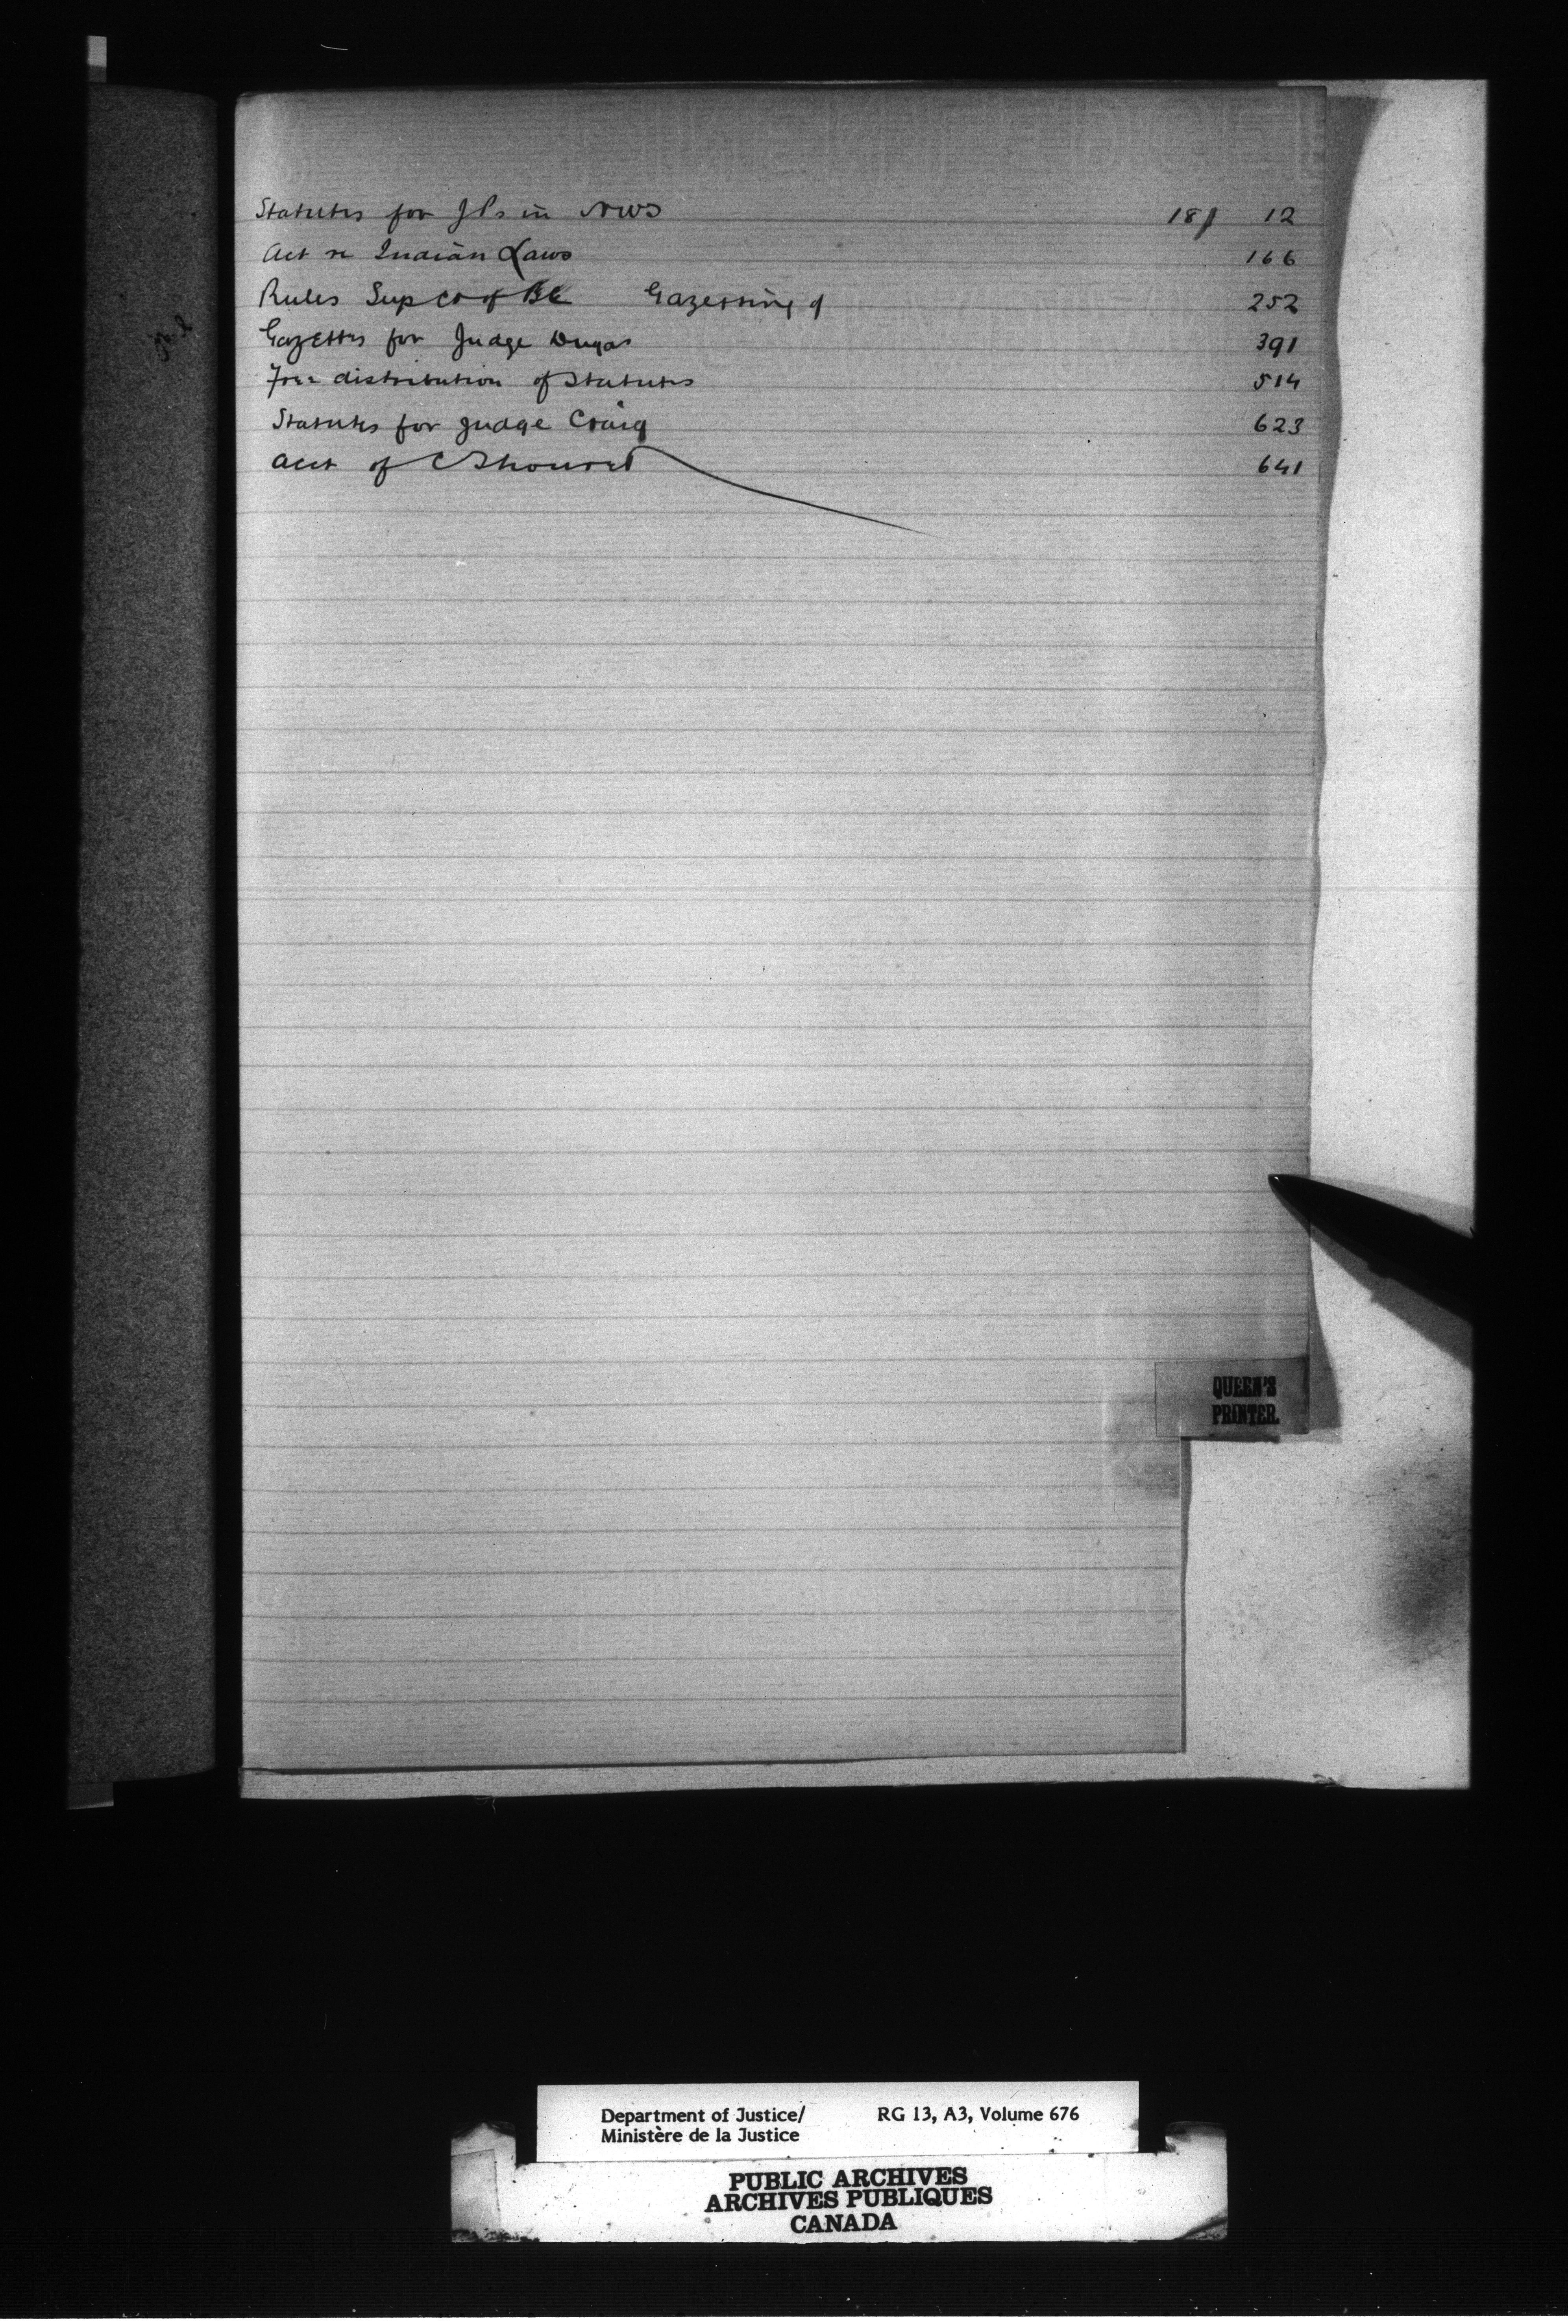 Statutes for JPs in NWS 18 12
Act re Indian Laws 166
Rules Sup Ct of BC Gazetting of 252
Gazettes for Judge Dugas 391
Free distribution of Statutes 514
Statutes for Judge Craig 623
Acct of C 641
QUEEN'S
PRINTER.
Department of Justice/ RG 13, A3, Volume 676
Ministère de la Justice
PUBLIC ARCHIVES
ARCHIVES PUBLIQUES
CANADA